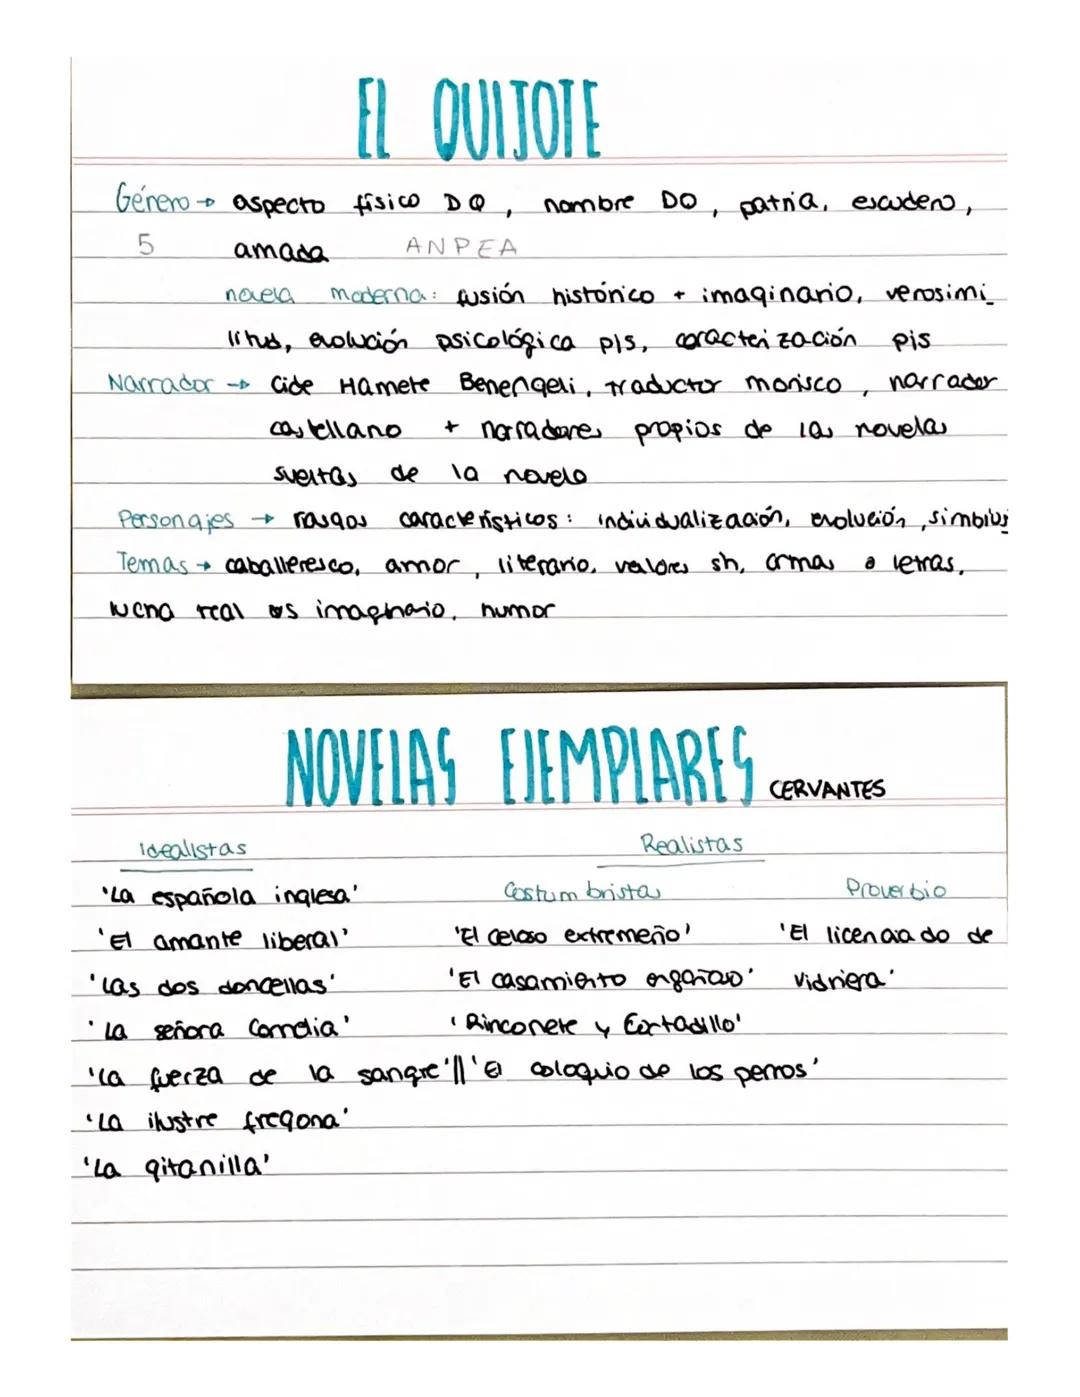 EL QUIJOTE
Género → aspecto físico DQ, nombre DQ, patria, escudero,
5 amada ANPEA
novela moderna: fusión histórico + imaginario, verosimi_
litud, evolución psicológica pjs, caracterización pjs
Narrador → Cide Hamete Benengeli, traductor morisco, narrador
castellano + narradores propios de las novelas
sueltas de la novela
Personajes → rasgos característicos: individualización, evolución, símbolos
Temas → caballeresco, amor, literario, valores sh, armas o letras,
lucha real vs imaginario, humor
NOVELAS EJEMPLARES CERVANTES
Idealistas Realistas
'La española inglesa' Costumbristas Proverbio
'El amante liberal' 'El celoso extremeño' 'El licenciado de
'Las dos doncellas' 'El casamiento engañoso' vidriera'
'La señora Cornelia' 'Rinconete y Cortadillo'
'La fuerza de la sangre' || 'El coloquio de los perros'
'La ilustre fregona'
'La gitanilla'